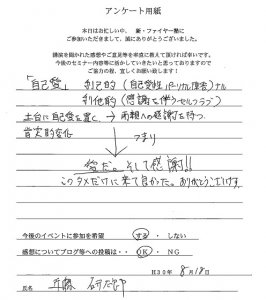 アンケート用紙
本日はお忙しい中、 新・ファイヤー塾に
ご参加いただきまして、誠にありがとうございました。
講演を聞かれた感想やご意見等を率直に教えて頂ければ幸いです。
今後のセミナー内容等に活かしていきたいと思っておりますので
ご協力の程、宜しくお願い致します！
「自己愛」 利己的（自己愛性パーソナル障害）ナル
利他的（感謝を伴うセルフラブ）
土台に自己愛を置く → 両親への感謝を持つ
つまり
愛だ。そして感謝!!
このタメだけに来て良かった。ありがとうございます
今後のイベントに参加を希望 する ・ しない
感想についてブログ等への投稿は・・ OK ・ NG
H30年 8月18日
氏名